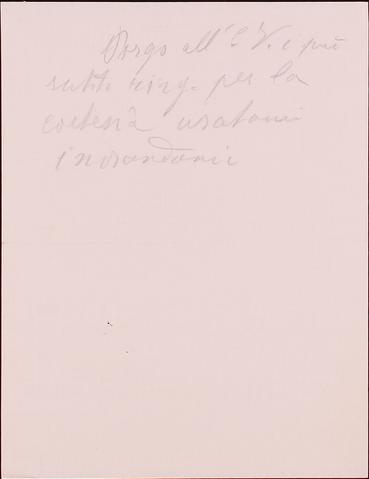 Porgo all' E. V. i più
sentiti ring. per la
cortesia usatami